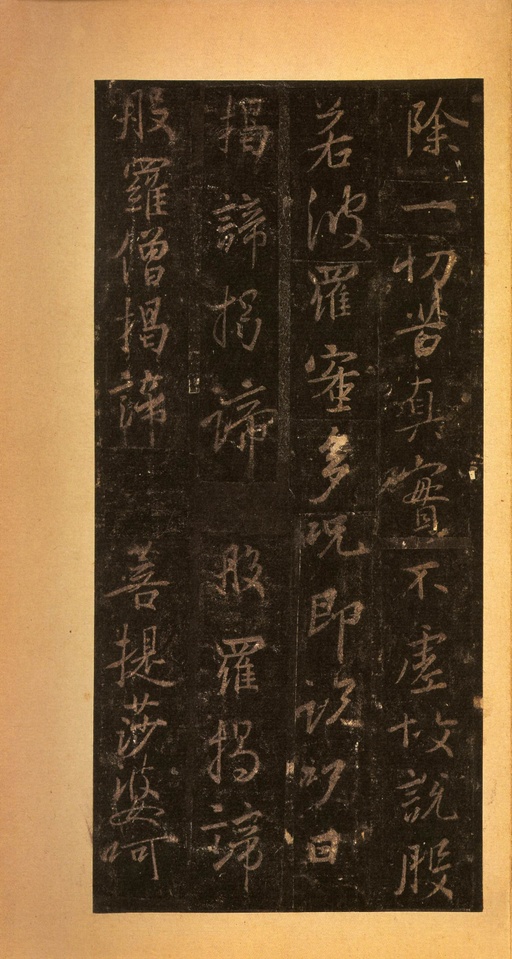 除一切苦真實不虛故說般
若波羅蜜多呪即說呪曰
揭諦揭諦 般羅揭諦
般羅僧揭諦 菩提莎婆呵